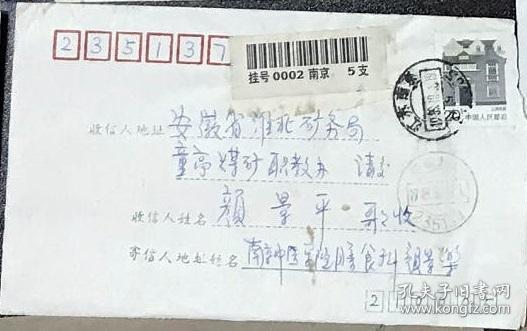 235137
挂号 0002 南京 5支
中国人民邮政
收信人地址 安徽省淮北矿务局
童亭煤矿职教办 请交
收信人姓名 颜景平 收
寄信人地址姓名 南京中医学院膳食科 颜景
2
孔夫子旧书网
www.kongfz.com